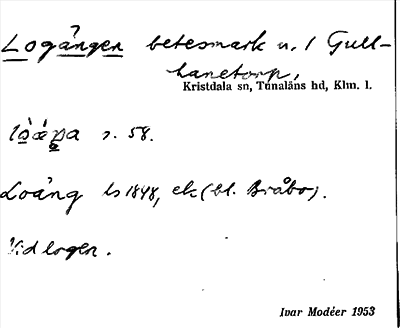 Logången betesmark n. 1 Gull-
hanetorp,
Kristdala sn, Tunaläns hd, Klm. l.
s. 58.
Loäng ls 1848, ek (bl. Bråbo).
Vid logen.
Ivar Modéer 1953